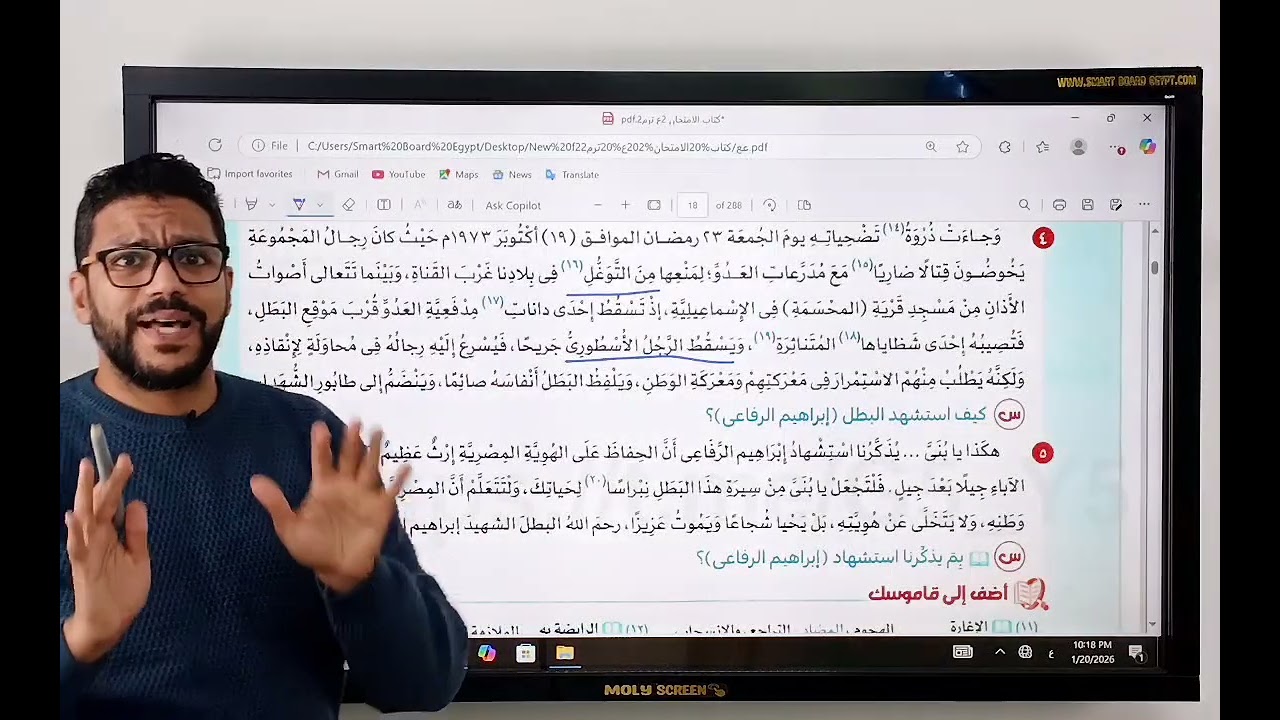 WWW.SMART BOARD EGYPT.COM
كتاب الامتحان 2ع ترم2.pdf*
File
C:/Users/Smart%20Board%20Egypt/Desktop/New%20f22عع/كتاب%20الامتحان%202ع%20ترم.pdf
Import favorites Gmail YouTube Maps News Translate
Ask Copilot
18 of 288
٤ وَجاءَتْ ذُرْوَةُ(١٤) تَضْحِياتِهِ يومَ الجُمعَة ٢٣ رمضـان الموافـق (١٩) أُكْتُوبَرَ ١٩٧٣م حَيْثُ كانَ رِجـالُ المَجْمُوعَةِ
يَخُوضُـونَ قِتالًا ضارِيًا(١٥) مَعَ مُدَرَّعاتِ العَـدُوِّ؛ لِمَنْعِها مِنَ التَّوَغُّلِ(١٦) فِى بِلادِنا غَرْبَ القَناةِ، وَبَيْنَما تَتَعالى أَصْواتُ
الأَذانِ مِنْ مَسْجِدِ قَرْيَةِ (المحْسَمَةِ) فِى الإِسْماعِيلِيَّةِ، إِذْ تَسْقُطُ إِحْدَى داناتِ(١٧) مِدْفَعِيَّةِ العَدُوِّ قُرْبَ مَوْقِعِ البَطَلِ،
فَتُصِيبُهُ إِحْدَى شَظاياها(١٨) المُتَناثِرَةِ(١٩)، وَيَسْقُطُ الرَّجُلُ الأُسْطُورِىُّ جَرِيحًا، فَيُسْرِعُ إِلَيْهِ رِجالُهُ فِى مُحاوَلَةٍ لِإِنْقاذِهِ،
وَلَكِنَّهُ يَطْلُبُ مِنْهُمْ الاسْتِمْرارَ فِى مَعْرَكَتِهِمْ وَمَعْرَكَةِ الوَطَنِ، وَيَلْفِظُ البَطَلُ أَنْفاسَهُ صائِمًا، وَيَنْضَمُّ إِلى طابُورِ الشُّهَداءِ.
س كيف استشهد البطل (إبراهيم الرفاعى)؟
٥ هكَذا يا بُنَىَّ ... يُذَكِّرُنا اسْتِشْهادُ إِبْراهِيم الرِّفَاعِى أَنَّ الحِفاظَ عَلَى الهُوِيَّةِ المِصْرِيَّةِ إِرْثٌ عَظِيمٌ
الآباءِ جِيلًا بَعْدَ جِيلٍ. فَلْتَجْعَلْ يا بُنَىَّ مِنْ سِيرَةِ هذَا البَطَلِ نِبْراسًا(٢٠) لِحَياتِكَ، وَلْتَتَعَلَّمْ أَنَّ المِصْرِ
وَطَنِهِ، وَلا يَتَخَلَّى عَنْ هُوِيَّتِهِ، بَلْ يَحْيا شُجاعًا وَيَمُوتُ عَزِيزًا، رحمَ اللهُ البطلَ الشهيدَ إبراهيم
س بِمَ يذكِّرنا استشهاد (إبراهيم الرفاعى)؟
أضف إلى قاموسك
(١١) الإغارة الهجوم، المضاد التراجع والانسحاب (١٢) الرابضة به
10:18 PM
1/20/2026
MOLY SCREEN